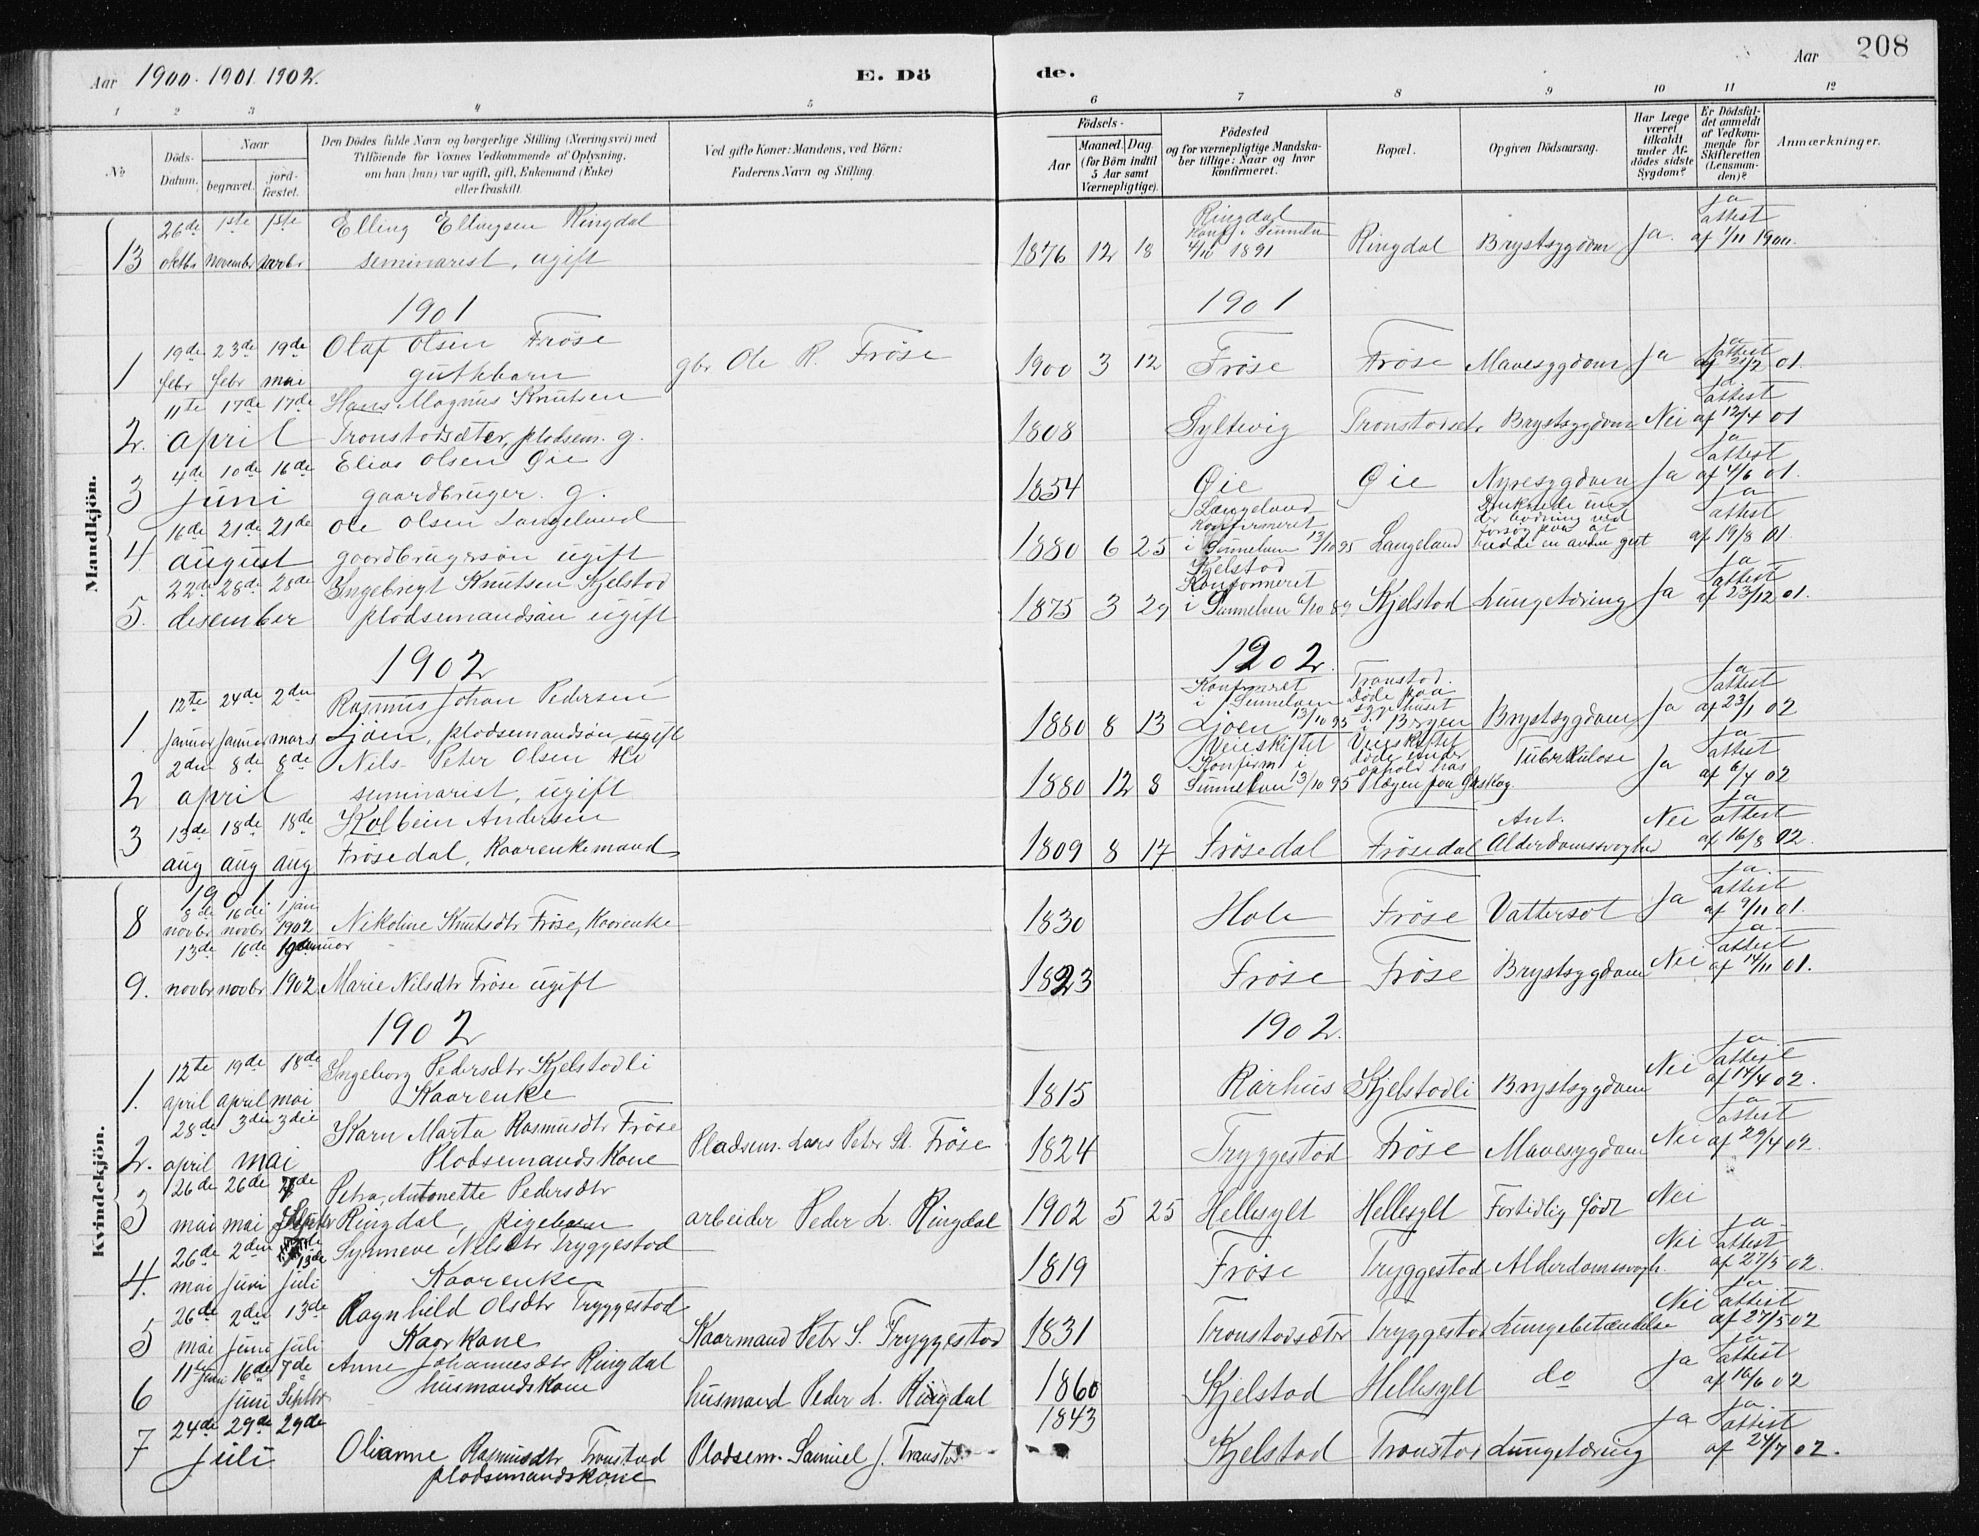 Aar 1900. 1901 1902.
E. Dö
de.
Aar
208
1 2 3 4 5 6 7 8 9 10 11 12
No
Döds-
Datum.
Naar
begravet.
jord-
fæstet.
Den Dödes fulde Navn og borgerlige Stilling (Næringsvei) med
Tilföiende for Voxnes Vedkommende af Oplysning,
om han (hun) var ugift, gift, Enkemand (Enke)
eller fraskilt.
Ved gifte Koner: Mandens, ved Börn:
Faderens Navn og Stilling.
Födsels-
Aar
Maaned. Dag
(for Börn indtil
5 Aar samt
Værnepligtige).
Födested
og for værnepligtige Mandska-
ber tillige: Naar og hvor
konfirmeret.
Bopæl.
Opgiven Dödsaarsag.
Har Læge
været
tilkaldt
under Af-
dödes sidste
Sygdom?
Er Dödsfal-
det anmeldt
af Vedkom-
mende for
Skifteretten
(Lensman-
den)?
Anmærkninger.
Mandkjön.
13 26de 1ste 1ste Elling Ellingsen Ringdal
oktbr november novbr seminarist, ugift
1876 12 18 Ringdal
Konf. i Sunnelv
4/10 1891 Ringdal Brystsygdom Ja. Ja
attest
af 1/11 1900.
1901
1901
1 19de 23de 19de Olaf Olsen Fröse
febr febr mai guthbarn
gbr Ole R. Fröse
1900 3 12 Fröse Fröse Mavesygdom Ja Ja
attest
af 21/2 01.
2. 11te 17de 17de Hans Magnus Knutsen
april Tronstadsæter, pladsem. g.
1808 Gyltevig Tronstadsætr Brystsygdom Nei attest
af 12/4 01
3 4de 10de 16de Elias Olsen Øie
juni gaardbruger. g.
1854 Øie Øie Nyresygdom Ja Ja
attest
af 4/6 01.
4. 16de 21de 21de Ole Olsen Langeland
august gaardbrugersön ugift
1880 6 25 Langeland
Konfirmeret
i Sunnelven 13/10 95 Langeland Druknede un-
der badning ved
forsög paa at
redde en anden gut
Ja
attest
af 19/8 01.
5. 22de 28de 28de Ingebregt Knutsen Kjelstad
desember pladsemandsön ugift
1875 3 29 Kjelstad
Konformeret
i Sunnelven 6/10 89 Kjelstad Lungetæring Ja Ja
attest
af 23/12 01.
1902
1902.
1. 12te 24de 2den Rasmus Johan Pedersen
januar januar mars Ljöen, pladsemandsön ugift
1880 8 13 Konfirmeret
i Sunnelven
Ljöen 13/10 95 Tronstad.
Döde paa
sygehuset
i Bergen Brystsygdom Ja Ja
attest
af 23/1 02
2 2den 8de 8de Nils Peter Olsen
april seminarist, ugift
1880 12 8 Veieskiftet
Konfirm i
Sunnelven 13/10 95 Veieskiftet
döde under
ophold hos
Tuberkulose Ja Ja
attest
af 6/4 02
3 13de 18de 18de Kolbein Andersen
aug aug aug Frösedal, Kaarenkemand
1809 8 17 Frösedal Frösedal Ant.
Alderdomssvaghed Nei Ja
attest
af 16/8 02.
Kvindekjön.
1901
8 8de 16de 1 jan
novbr novbr 1902 Nikoline Knutsdtr Fröse, Kaarenke
1830 Hole Fröse Vattersot Ja Ja
attest
af 9/11 01.
9. 13de 16de januar
novbr novbr 1902 Marie Nilsdtr Fröse ugift
1823 Fröse Fröse Brystsygdom Nei Ja
attest
af 14/11 01.
1902
1902.
1. 12te 19de 18de Ingeborg Pedersdtr Kjelstadli
april april mai Kaarenke
1815 Rörhus Kjelstadli Brystsygdom Nei Ja
attest
af 14/4 02.
2. 28de 3die 3die Karn Marta Rasmusdtr Fröse
april mai Pladsemandskone
Pladsem. Lars Peter St. Fröse
1824 Tryggestad Fröse Mavesygdom Nei Ja
attest
af 29/4 02.
3 26de 26de 7de Petra Antonette Pedersdtr
mai mai Septbr Ringdal, pigebarn
arbeider Peder L. Ringdal
1902 5 25 Hellesylt Hellesylt Fortidlig födt Nei
4. 26de 2den 13de Synneve Nilsdtr Tryggestad
mai juni juli Kaarenke
1819 Fröse Tryggestad Alderdomssvagh. Nei Ja
attest
af 27/5 02.
5 26de 2den 13de Ragnhild Olsdtr Tryggestad
mai juni juli Kaarkone
Kaarmand Petr S. Tryggestad
1831 Tronstadsæter Tryggestad Lungebetændelse Nei Ja
attest
af 27/5 02
6 11te juni 16de 7de Anne Johannesdtr Ringdal
juni Septbr husmandskone
husmand Peder L. Ringdal
1860 Kjelstad Hellesylt do Ja Ja
attest
af 16/6 02
7 24de 29de 29de
juli Olianne Rasmusdtr Tronstad
pladsemandskone
Pladsem. Samuel J. Tronstad
1843 Kjelstad Tronstad Lungetæring Ja Ja
attest
af 24/7 02.